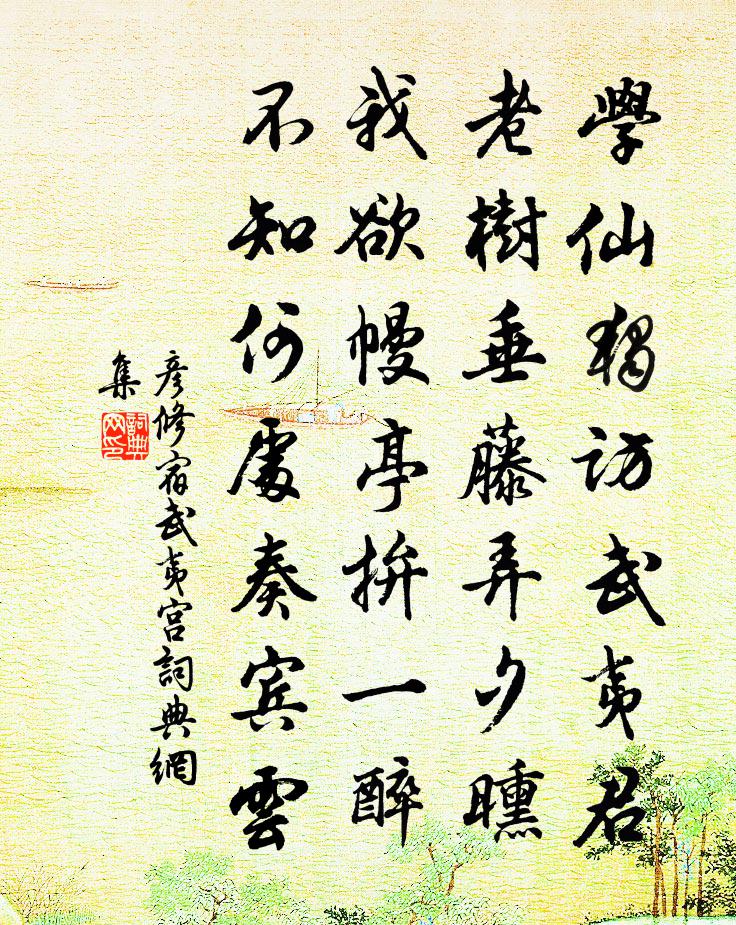 學仙獨訪武夷君
老樹垂藤弄夕曛
我欲幔亭拚一醉
不知何處奏賓雲
彦修宿武夷宮詞典網
集
詞典
网印